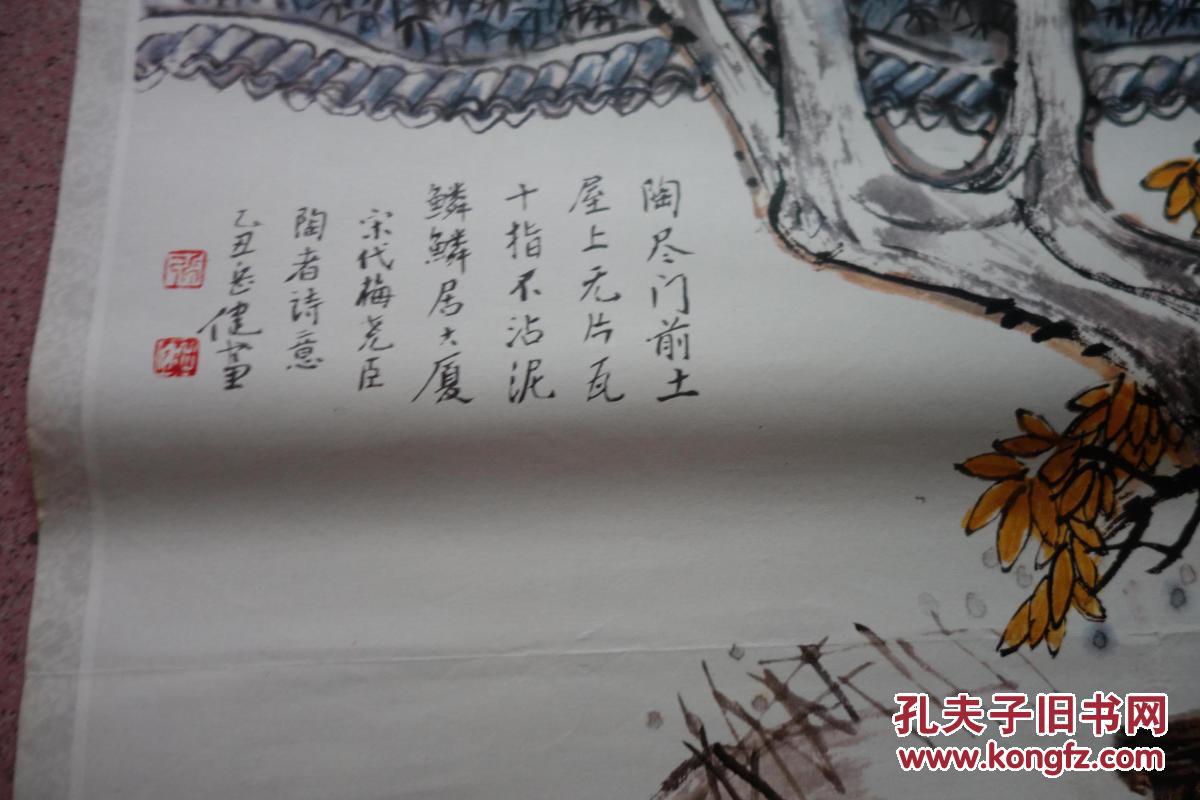 陶尽门前土
屋上无片瓦
十指不沾泥
鳞鳞居大厦
宋代梅尧臣
陶者诗意
乙丑岳健画
孔夫子旧书网
www.kongfz.com